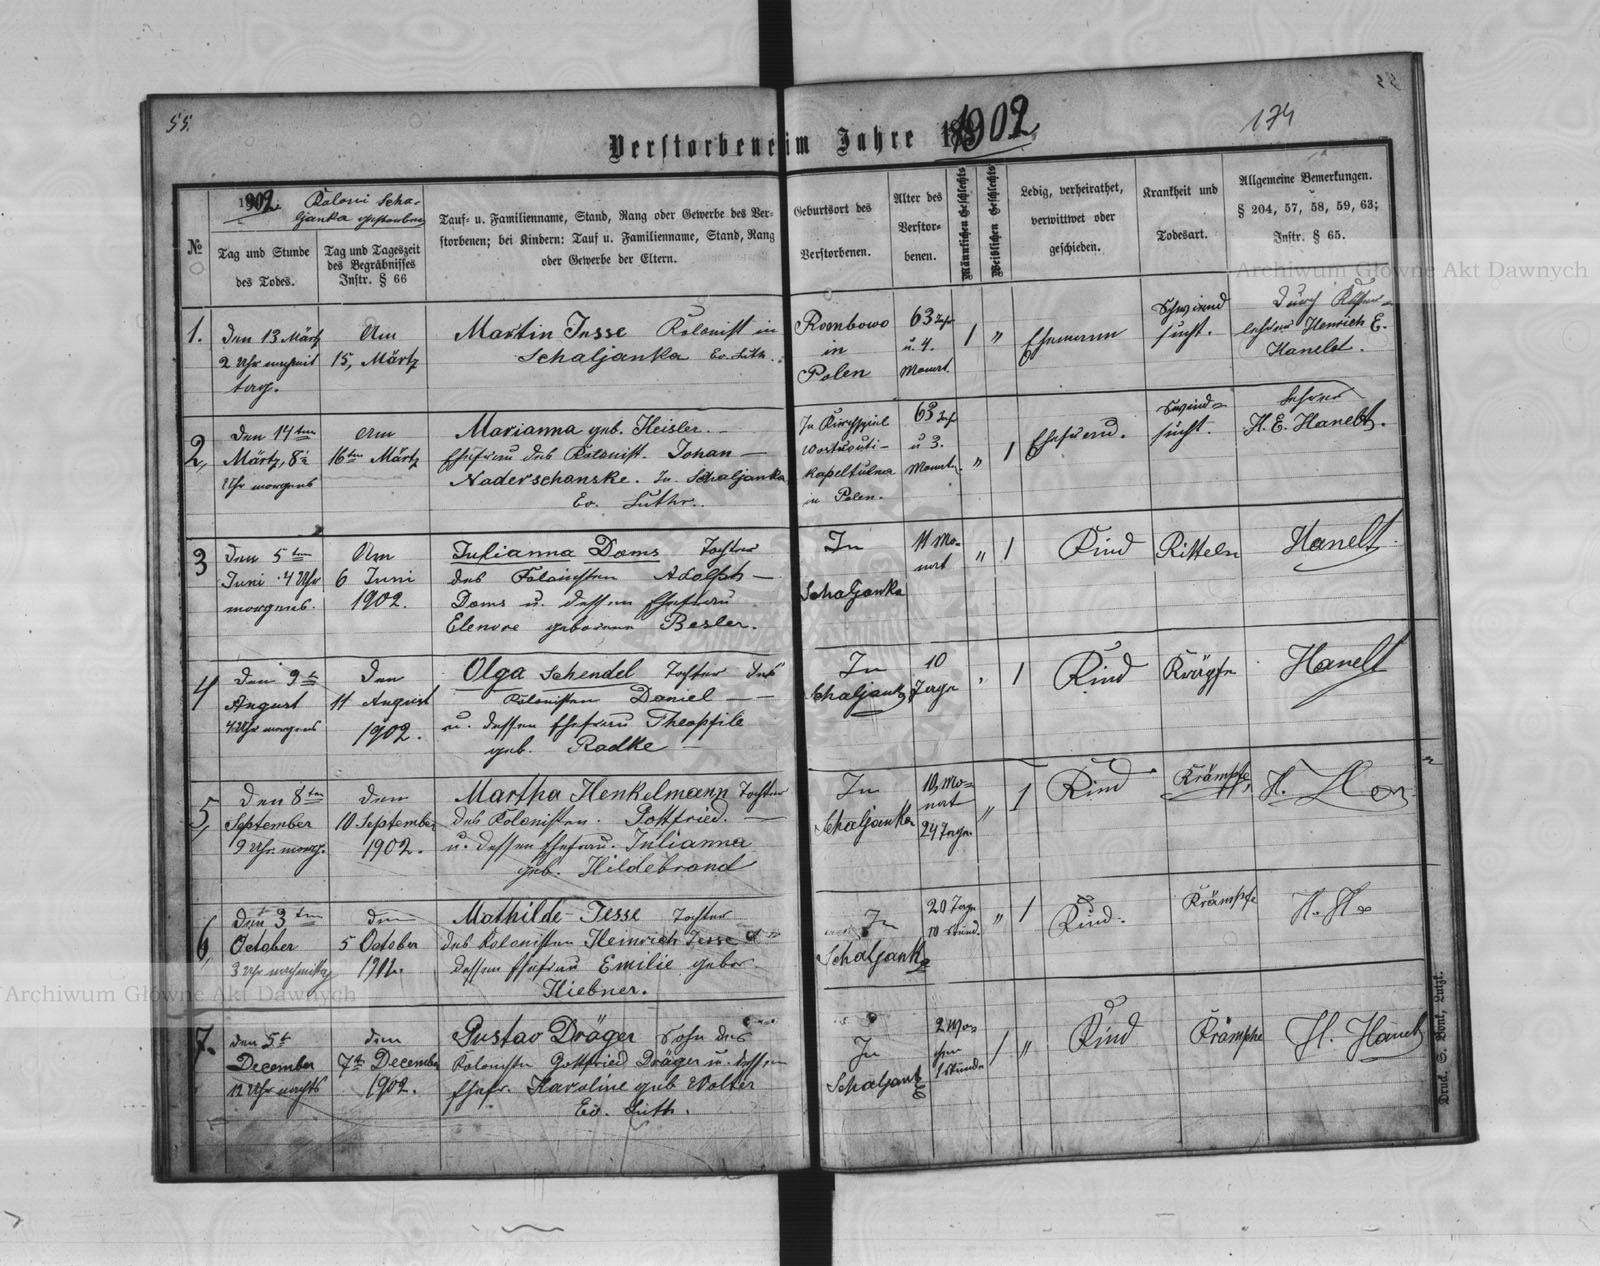 55.
55
174
Verstorbene im Jahre 1902
1902. Koloni Scha-
ljanka gestorben
№
Tag und Stunde
des Todes.
Tag und Tageszeit
des Begräbnisses
Instr. § 66
Tauf- u. Familienname, Stand, Rang oder Gewerbe des Ver-
storbenen; bei Kindern: Tauf u. Familienname, Stand, Rang
oder Gewerbe der Eltern.
Geburtsort des
Verstorbenen.
Alter des
Verstor-
benen.
Männlichen Geschlechts
Weiblichen Geschlechts
Ledig, verheirathet,
verwittwet oder
geschieden.
Krankheit und
Todesart.
Allgemeine Bemerkungen.
§ 204, 57, 58, 59, 63;
Instr. § 65.
1.
den 13 Märtz
2 Uhr nachmit
tag.
Am
15, Märtz
Martin Jesse Kolonist in
Schaljanka Ev. Luth.
Rombowo
in
Polen
63
u. 4.
Monat
1 "
Ehemann
Schwind
sucht.
Durch Küster-
lehrer Henrich E.
Hanelt.
2,
Den 14ten
Märtz, 8
Uhr morgens
Am
16ten Märtz
Marianna geb. Heisler. -
Ehefrau des Kolonist. Johan -
Naderschanske. In Schaljanka
Ev. Luthr.
In Kirchspiel
in Polen.
63
u 3.
Monate
" 1
Ehefrau.
Swind=
sucht.
Lehrer
H. E. Hanelt.
3
Den 5ten
Juni 4 Uhr
morgens.
Am
6 Juni
1902.
Julianna Doms Tochter
des Kolonisten Adolph -
Doms u. dessen Ehefrau
Elenore geborene Besler.
In
Schaljanka
11 Mo-
nat
" 1
Kind
Ritteln
Hanelt
4
Den 9t
August
4 Uhr morgens
Den
11 August
1902.
Olga Schendel Tochter des
Kolonisten Daniel - -
u. dessen Ehefrau Theophile
geb. Radke -
In
Schaljanka
10
Tage
" 1
Kind
Krämpfe
Hanelt
5,
Den 8ten
September
9 Uhr morg.
den
10 September
1902.
Martha Henkelmann Tochter
des Kolonisten. Gottfried. -
u. dessen Ehefrau. Julianna
geb. Hildebrand
In
Schaljanka
Mo=
nat
24 Tage
" 1
Kind
Krämpfe
6,
Den 3ten
October
3 Uhr nachmittag
den
5 October
1902.
Mathilde Jesse Tochter
des Kolonisten Heinrich Jesse
dessen Ehefrau Emilie gebor
Hiebner.
In
Schaljanka
20 Tage
10 stund.
" 1
Kind.
Krämpfe
7.
den 5t
December
12 Uhr nachts
den
7t December
1902.
Gustav Dräger Sohn des
Kolonisten Gottfried Dräger u. dessen
Ehefr. Karoline geb Wolter
Ev. Luth.
In
Schaljanka
2 Wo-
chen
1 stunde
1 "
Kind
Krämphe
H. Hanelt
Archiwum Główne Akt Dawnych
Archiwum Główne Akt Dawnych